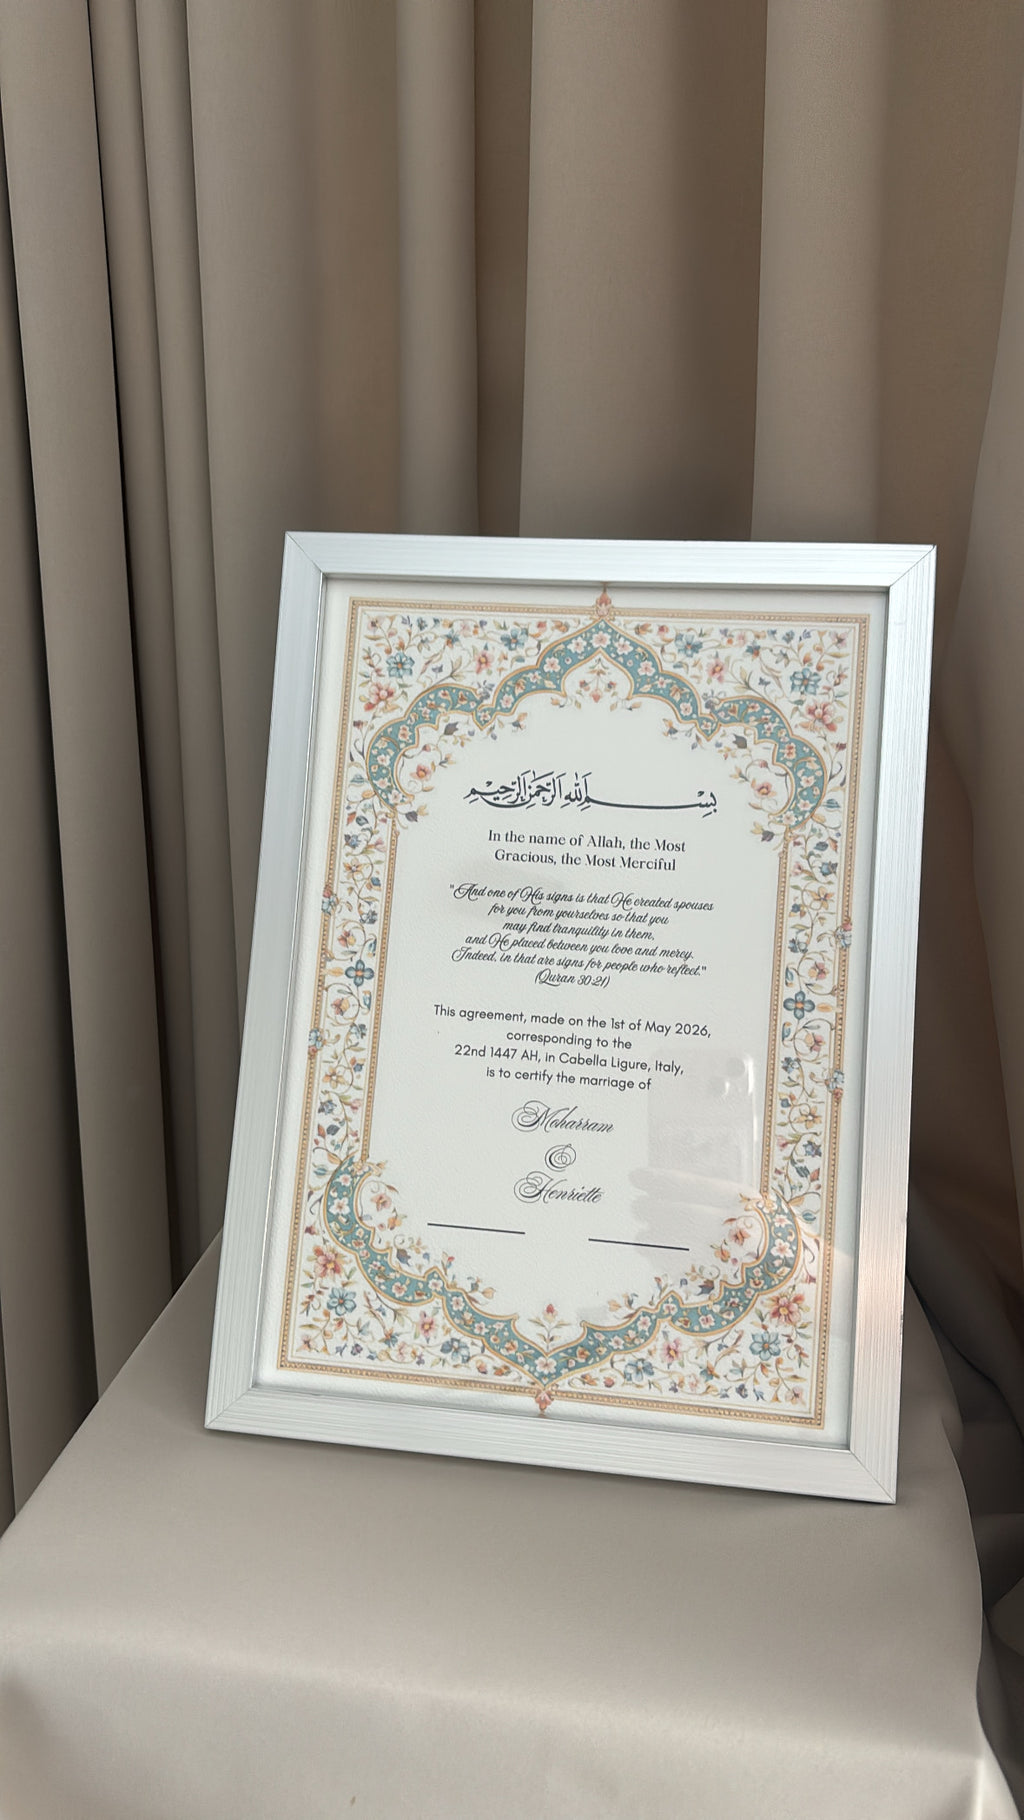 بِسْمِ اللهِ الرَّحْمٰنِ الرَّحِيْمِ
In the name of Allah, the Most
Gracious, the Most Merciful
"And one of His signs is that He created spouses
for you from yourselves so that you
may find tranquility in them,
and He placed between you love and mercy.
Indeed, in that are signs for people who reflect."
(Quran 30:21)
This agreement, made on the 1st of May 2026,
corresponding to the
22nd 1447 AH, in Cabella Ligure, Italy,
is to certify the marriage of
Moharram
&
Henriette